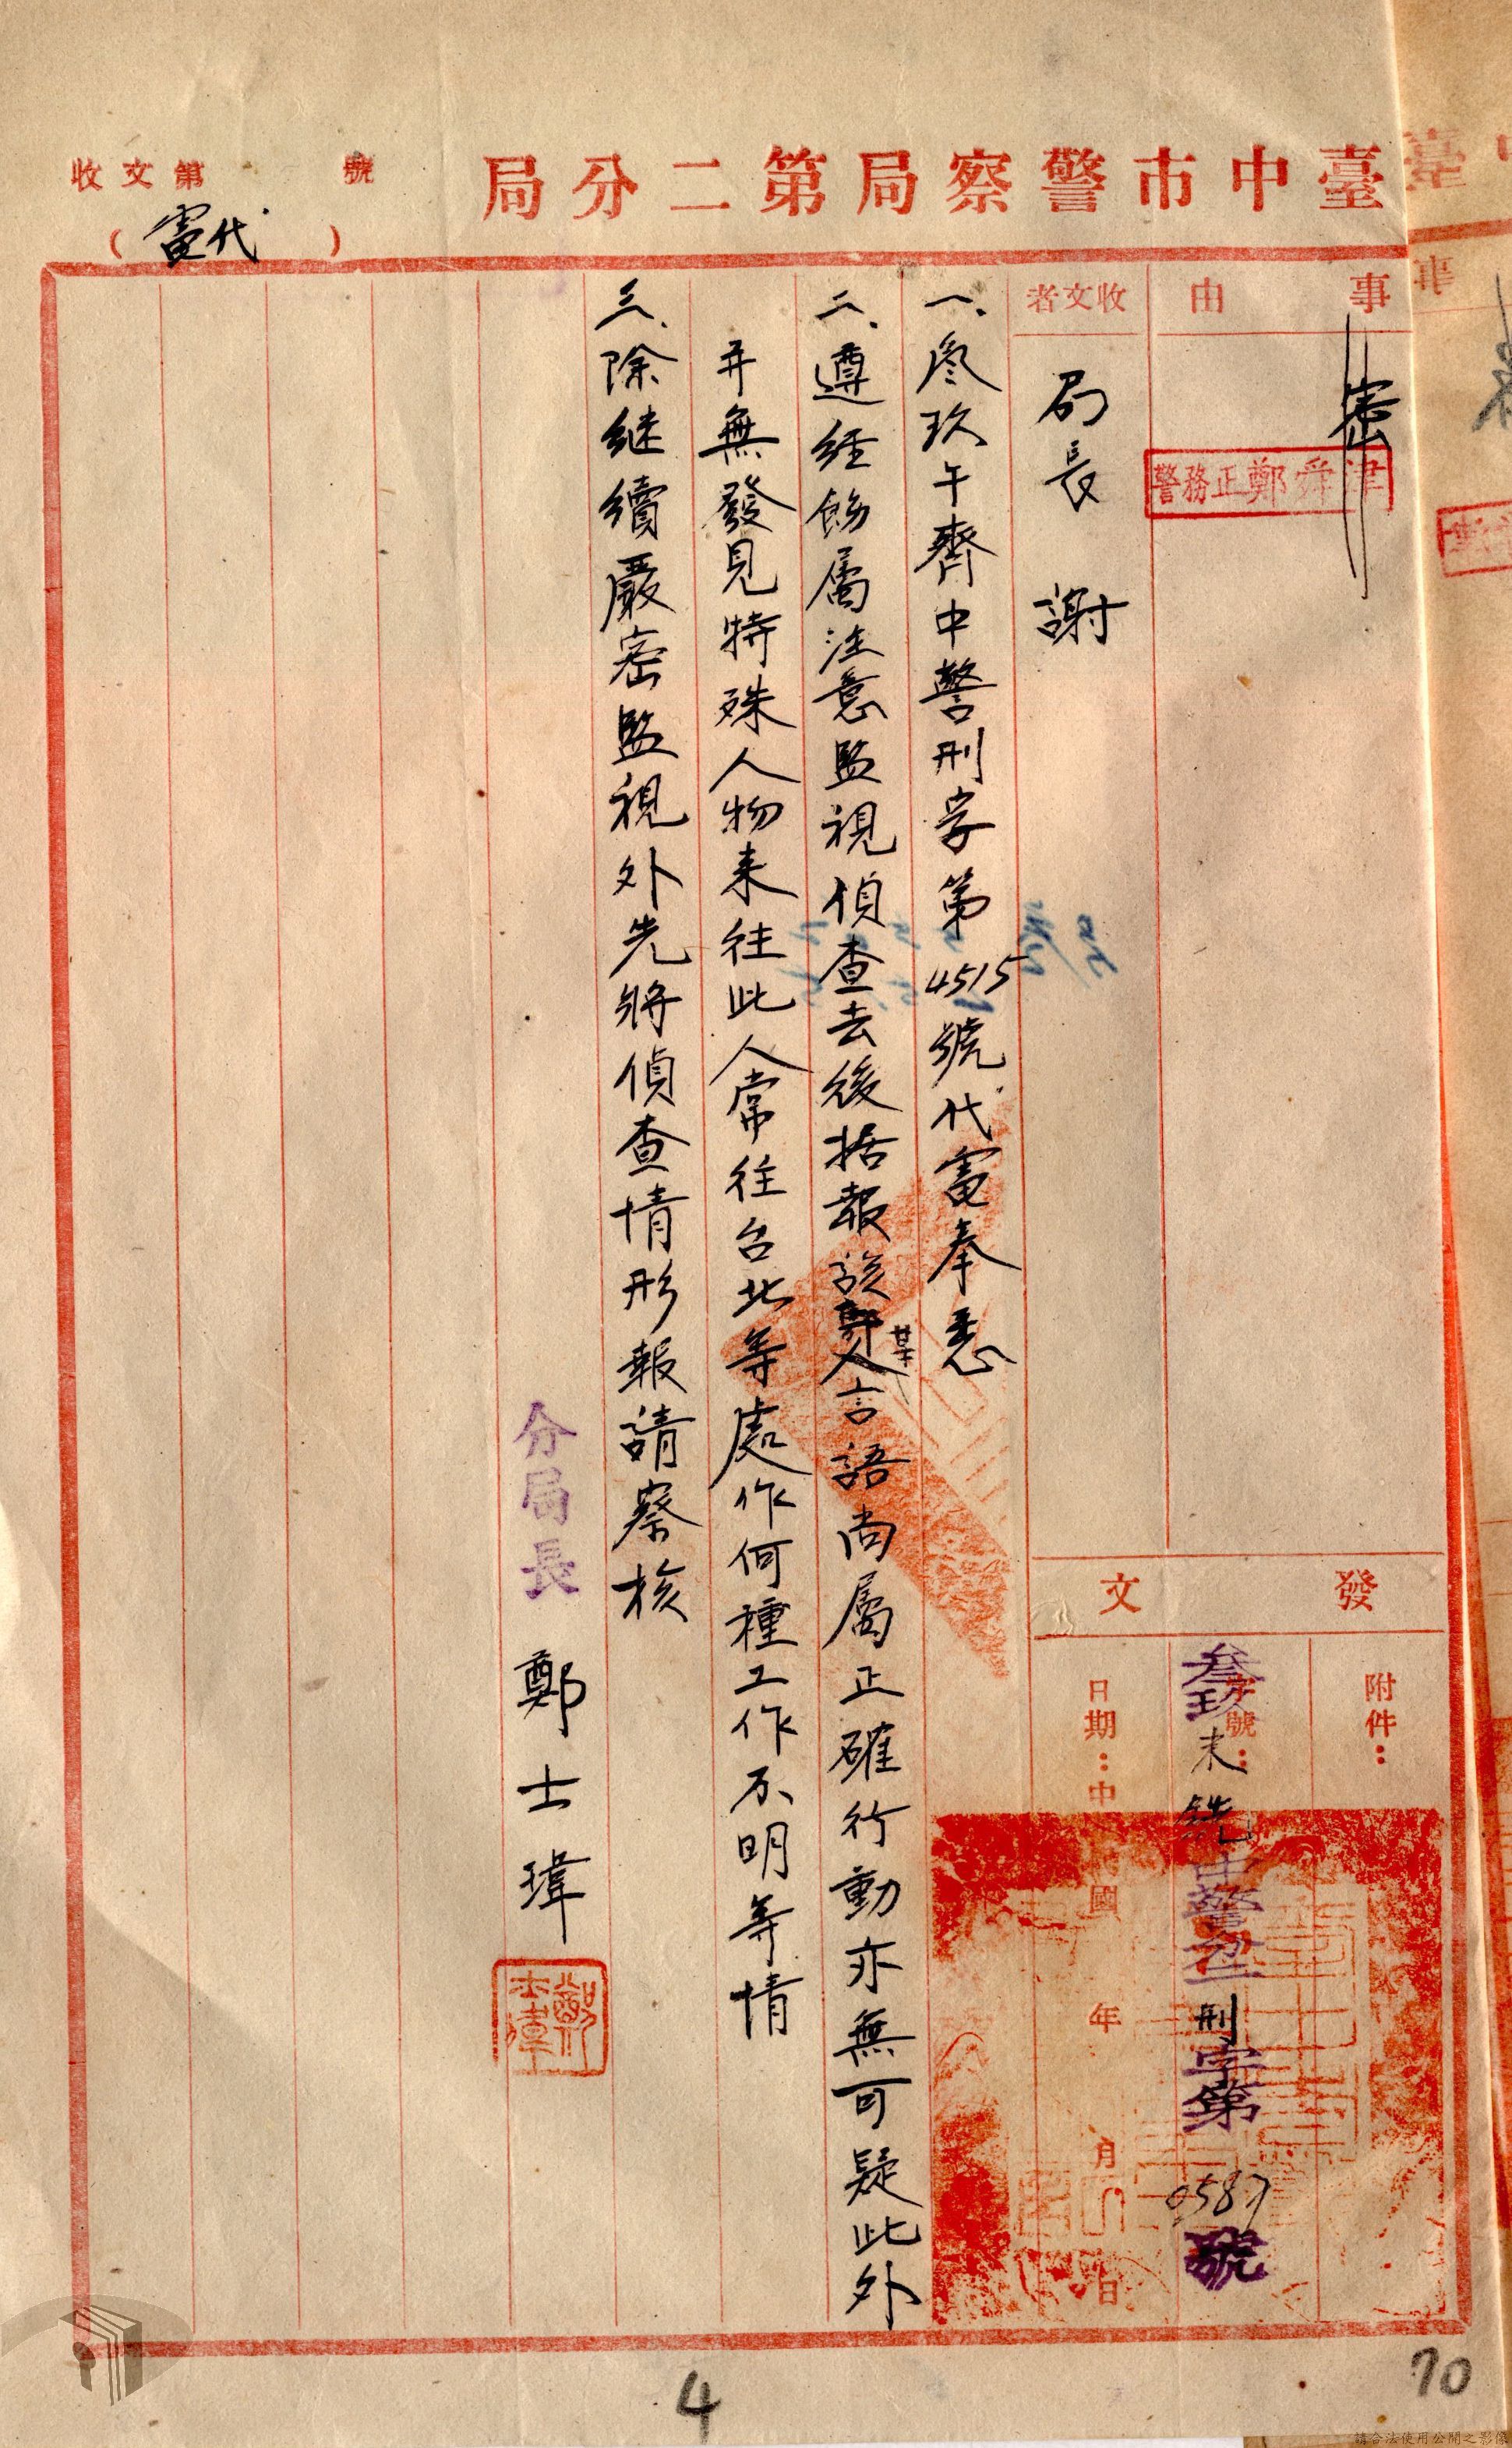 臺中市警察局第二分局
收文第 號
(代電)
事由
密
警務正鄭舜津
收文者
局長 謝
發文
附件：
字號：
叁玖未銑中警刑字第0587號
日期：中 國 年 月 日
一、叁玖午齊中警刑字第4515號代電奉悉
二、遵經飭屬注意監視偵查去後据報該某人言語尚屬正確行動亦無可疑此外
并無發見特殊人物来往此人常往台北等處作何種工作不明等情
三、除継續嚴密監視外先將偵查情形報請察核
分局長 鄭士瑋
鄭士瑋
4
70
請合法使用公開之影像